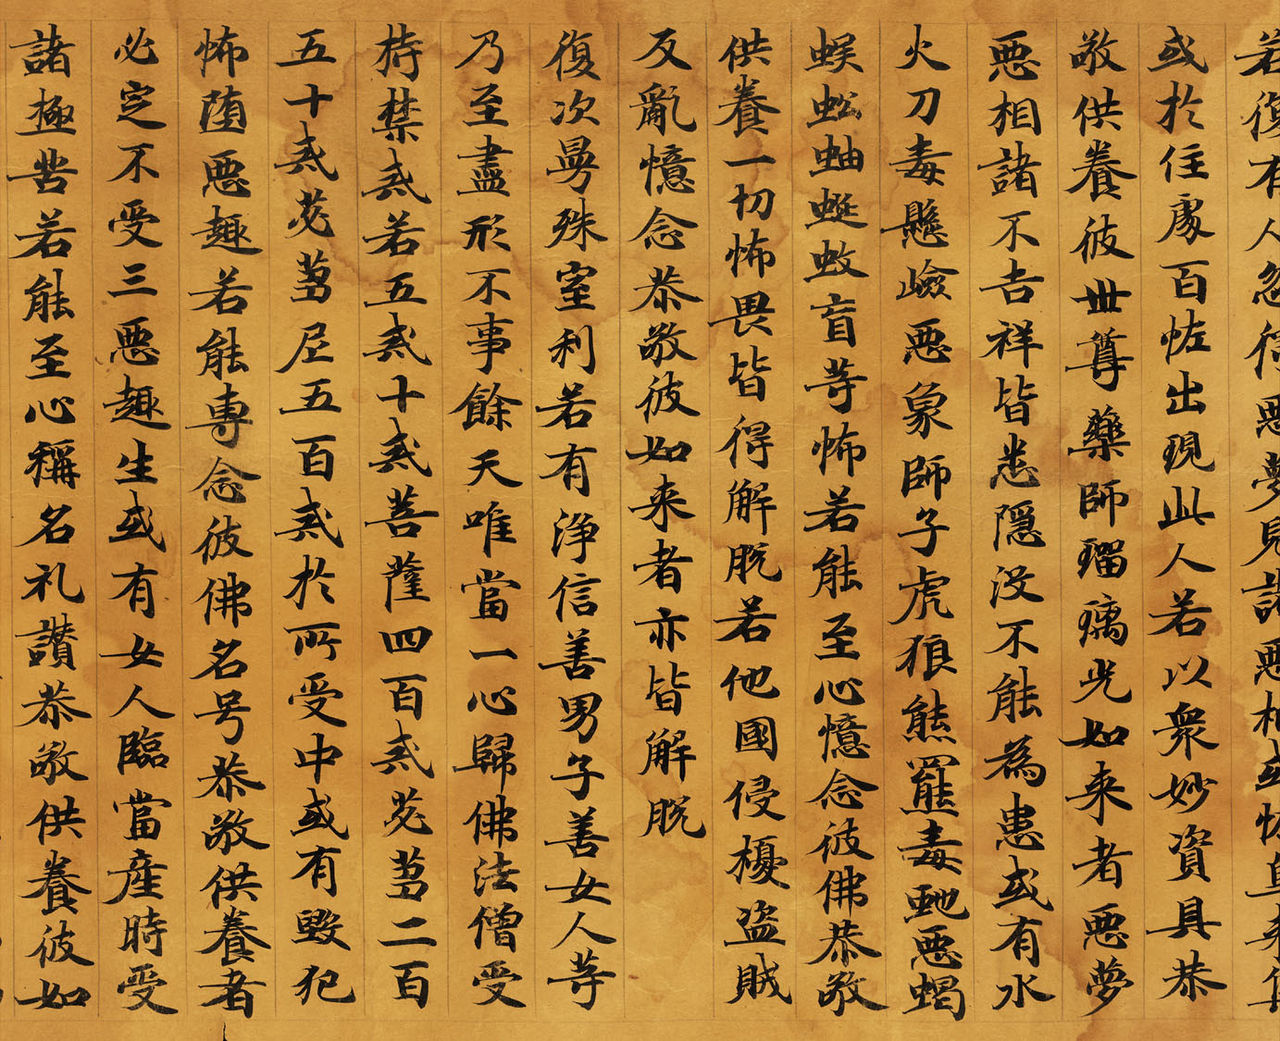 若復有人忽得惡夢見諸惡相或怪鳥来集
或於住處百怪出現此人若以衆妙資具恭
敬供養彼世尊藥師瑠璃光如来者惡夢
惡相諸不吉祥皆悉隱没不能為患或有水
火刀毒懸嶮惡象師子虎狼熊羆毒虵惡蝎
蜈蚣蚰蜒蚊盲等怖若能至心憶念彼佛恭敬
供養一切怖畏皆得解脫若他國侵擾盜賊
反亂憶念恭敬彼如来者亦皆解脫
復次曼殊室利若有淨信善男子善女人等
乃至盡形不事餘天唯當一心歸佛法僧受
持禁戒若五戒十戒菩薩四百戒苾芻二百
五十戒苾芻尼五百戒於所受中或有毀犯
怖墮惡趣若能專念彼佛名号恭敬供養者
必定不受三惡趣生或有女人臨當産時受
諸極苦若能至心稱名礼讃恭敬供養彼如